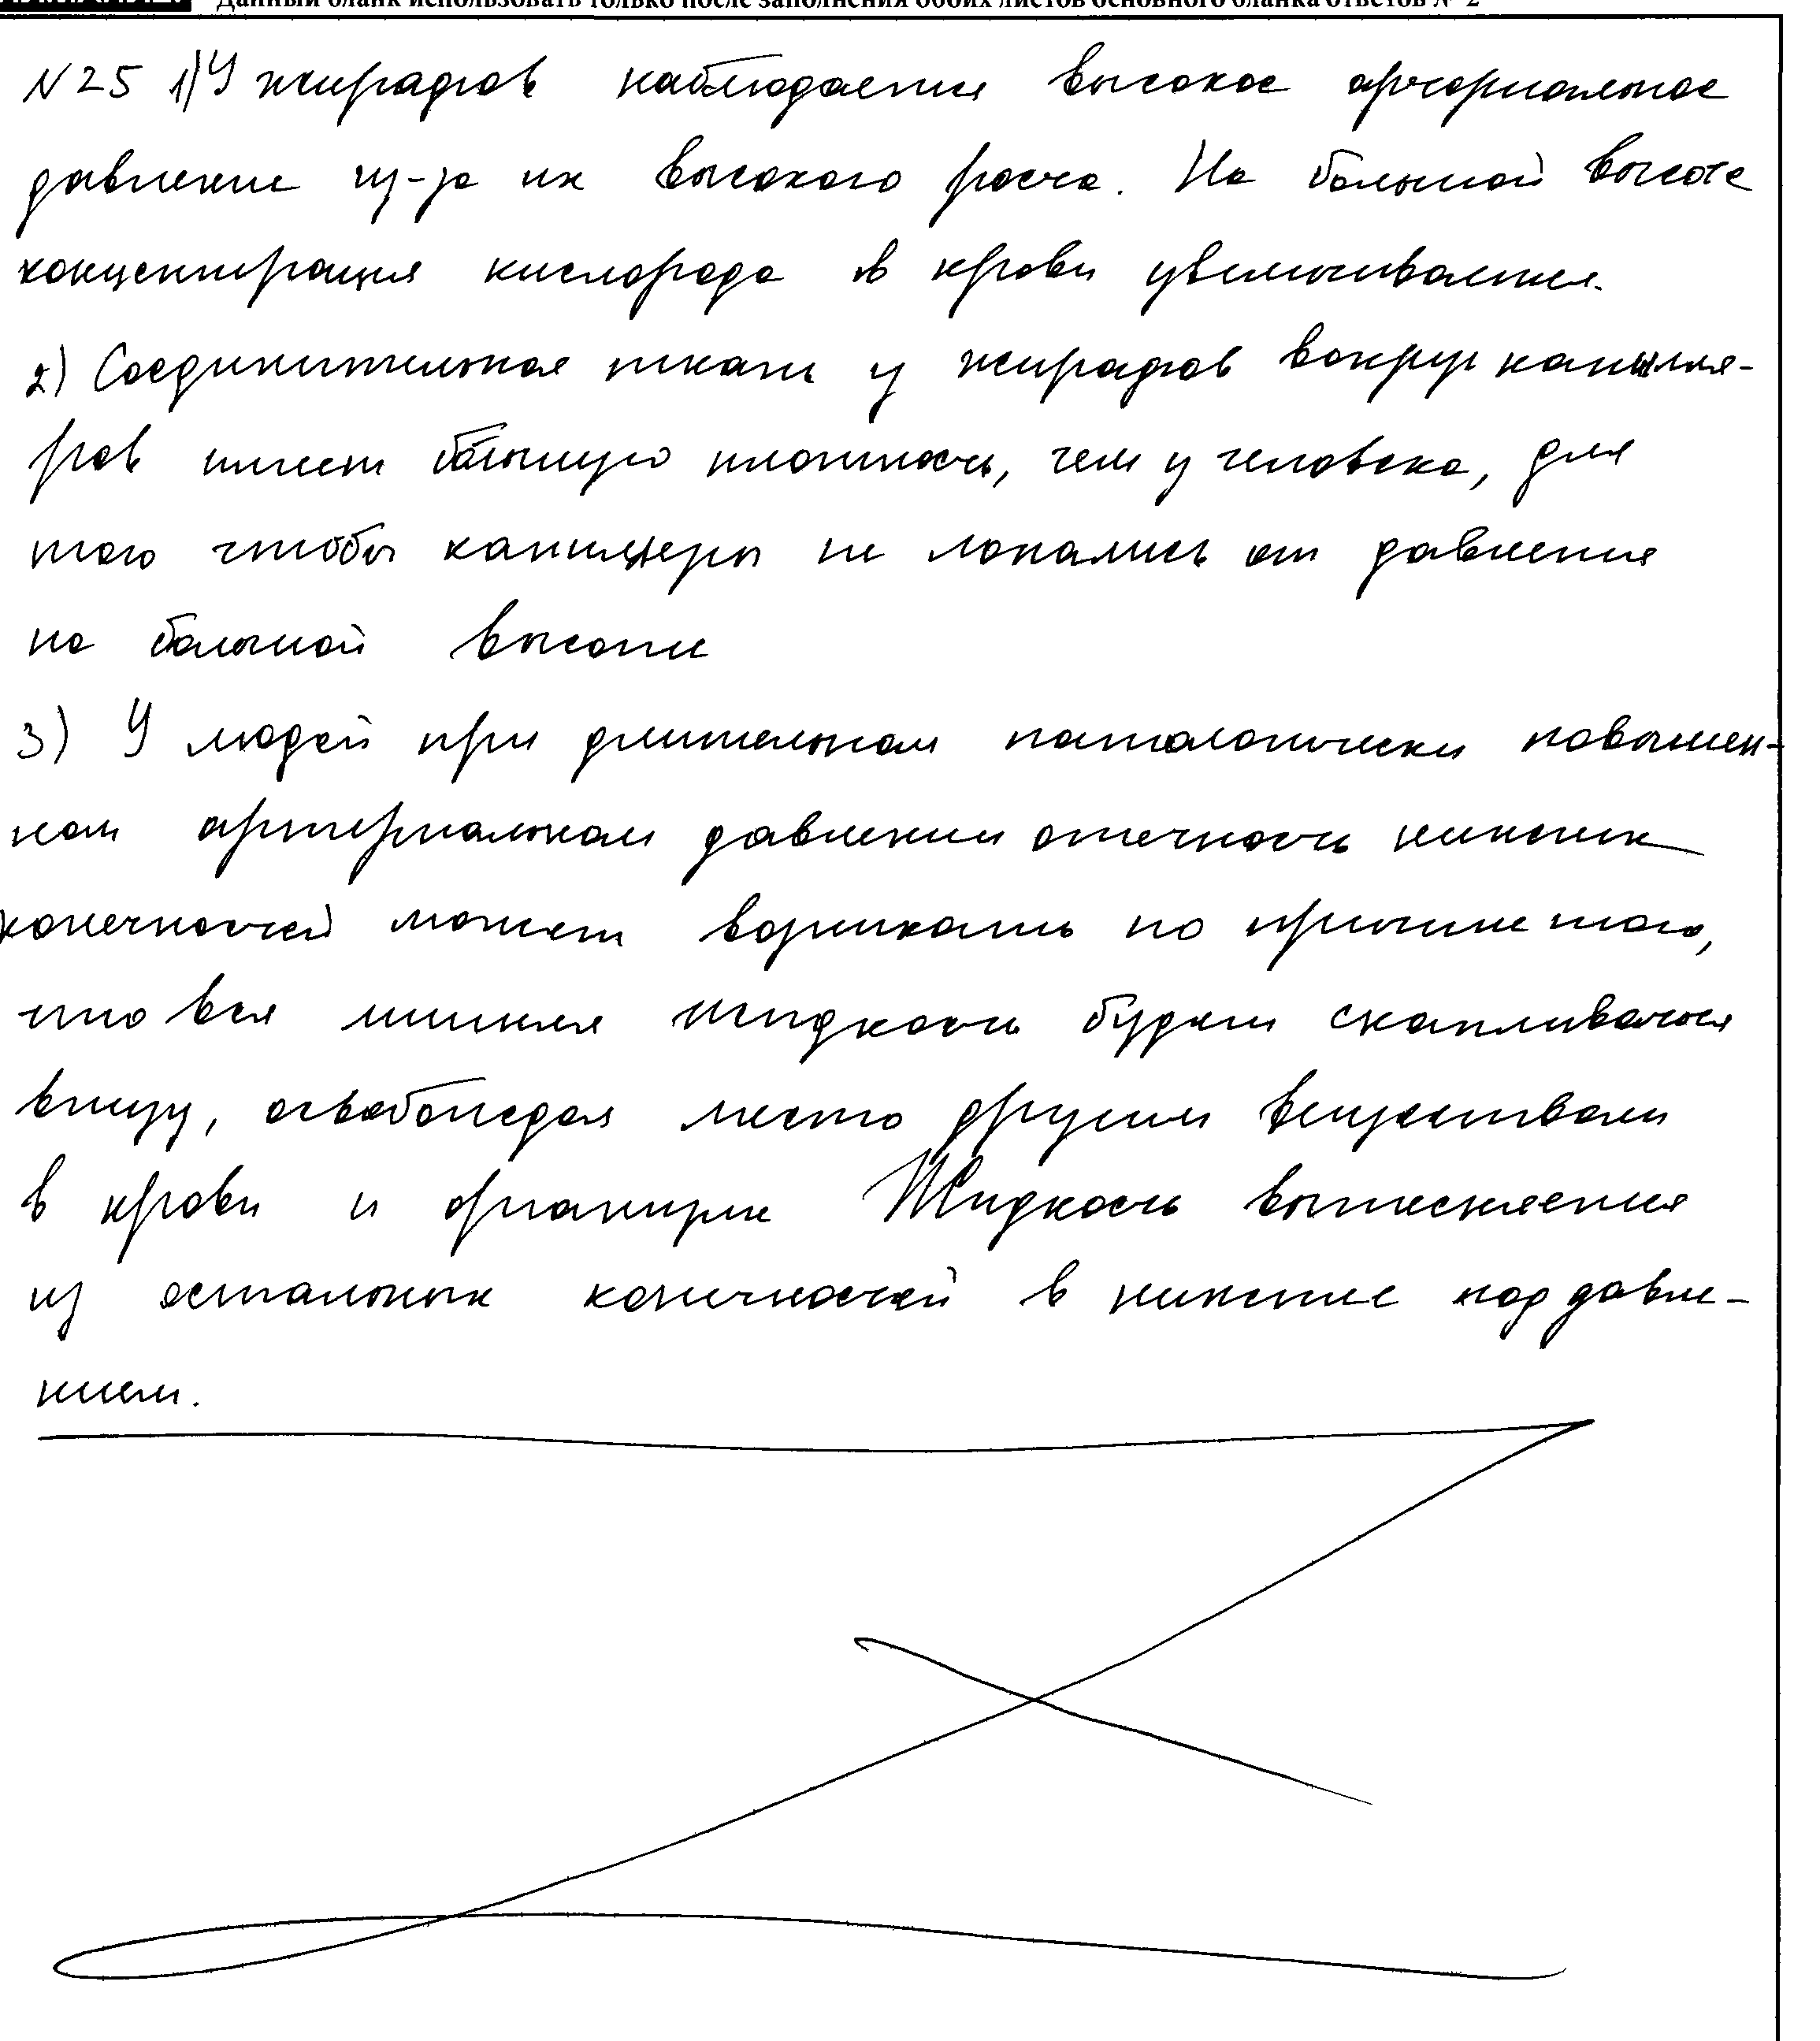 Данный бланк использовать только после заполнения обоих листов основного бланка ответов № 2
N25 1) У жирафов наблюдается высокое артериальное
давление из-за их высокого роста. На большой высоте
концентрация кислорода в крови увеличивается.
2) Соединительная ткань у жирафов вокруг капилля-
ров имеет большую плотность, чем у человека, для
того чтобы капилляры не лопались от давления
на большой высоте
3) У людей при длительном патологически повышен-
ном артериальном давлении отечность нижних
конечностей может возникать по причине того,
что вся лишняя жидкость будет скапливаться
внизу, освобождая место другим веществам
в крови и организме Жидкость вытесняется
из остальных конечностей в нижние под давле-
нием.